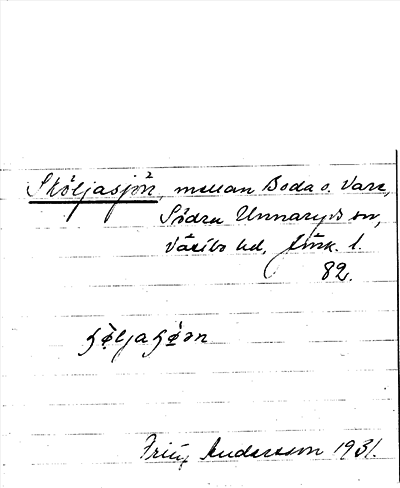 Sköljasjön, mellan Boda o. Vare,
Södra Unnaryds sn,
Västbo hd, Jönk. l.
82.
ʃø̀ljaʃø̀ən
Fritz Andersson 1931.